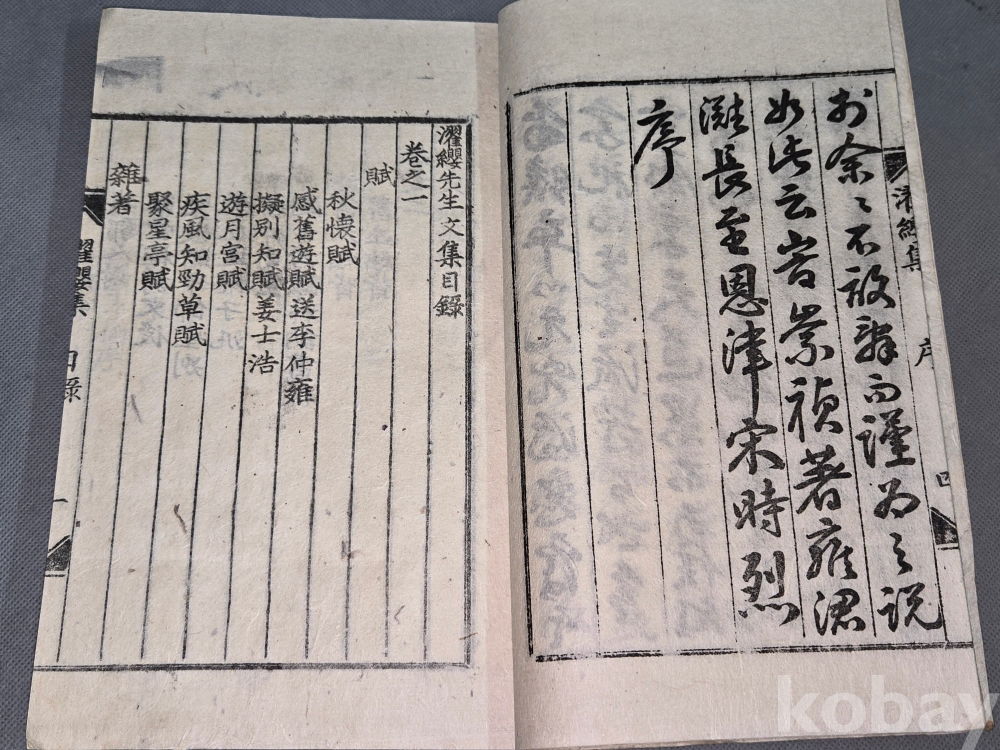 於余余不敢辭而謹爲之說
如此云峕崇禎著雍涒
灘長至恩津宋時烈
序
濯纓集
序
四
濯纓先生文集目錄
卷之一
賦
秋懷賦
感舊遊賦送李仲雍
擬別知賦姜士浩
遊月宮賦
疾風知勁草賦
聚星亭賦
雜著
濯纓集
目錄
一
kobay